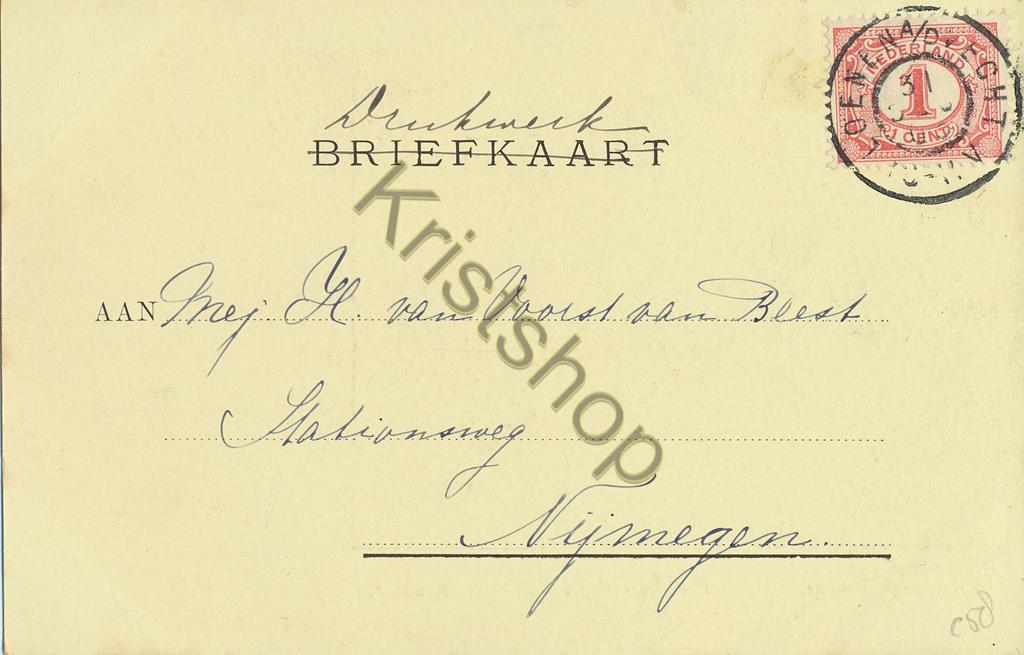 Drukwerk
BRIEFKAART
NEDERLAND
1
1 CENT
LOENEN A/D VECHT
31
10-11V
AAN Mej. H. van Voorst van Beest
Stationsweg
Nijmegen.
Kristshop
c58